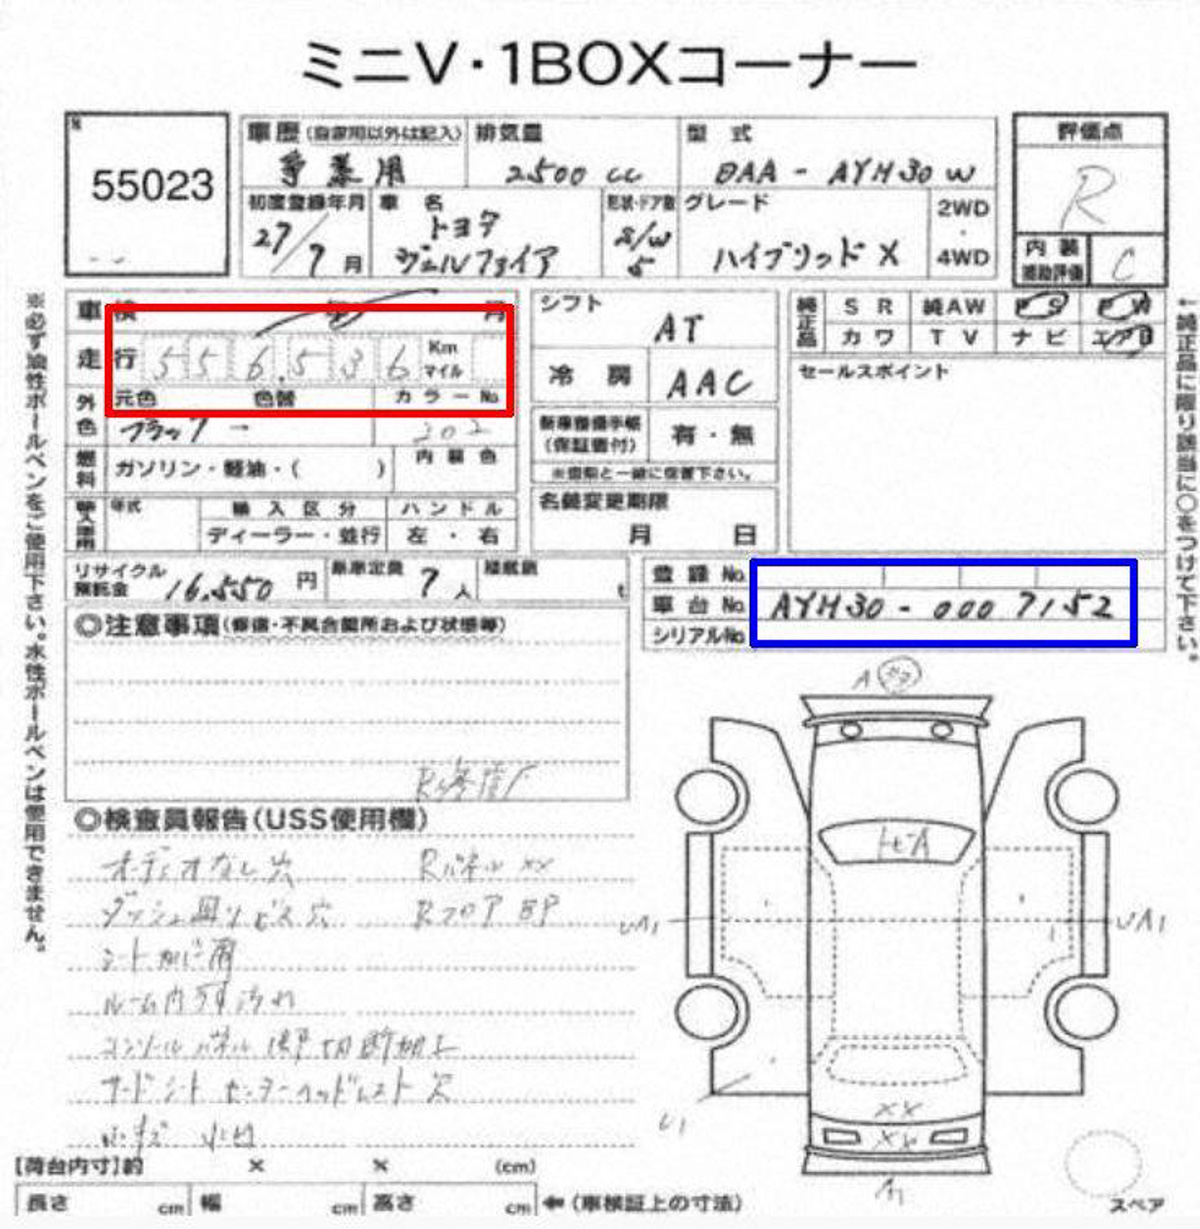 ミニV・1BOXコーナー
55023
車歴(自家用以外は記入)
事業用
排気量
2500 cc
型式
DAA - AYH30W
評価点
R
初度登録年月
27/7月
車名
トヨタ
ヴェルファイア
形状・ドア数
S/W
5
グレード
ハイブリッド X
2WD
・
4WD
内装
補助評価
C
※必ず油性ボールペンをご使用下さい。水性ボールペンは使用できません。
車検 年 月
走行 556,536 Km マイル
外色
元色 色替 カラーNo.
ブラック ー 202
燃料
ガソリン・軽油・( )
内装色
輸入車用
年式
輸入区分
ディーラー・並行
ハンドル
左・右
シフト
AT
冷房
AAC
新車整備手帳
(保証書付)
有・無
※書類と一緒に保管下さい。
名義変更期限
月 日
純正品
SR 純AW PS PW
カワ TV ナビ エアB
セールスポイント
←純正品に限り該当に○をつけて下さい。
リサイクル
預託金
16,550 円
乗車定員
7人
積載量
t
登録No.
車台No. AYH30 - 0007152
シリアルNo.
◎注意事項(修復・不具合箇所および状態等)
R修歴
◎検査員報告(USS使用欄)
オーディオなし穴 Rパネル XX
ダッシュ周リビス穴 Rフロア
シート
ルーム内 汚れ
コンソールパネル 切断加工
サードシート センターヘッドレスト欠
A
トヒA
UA1
UA1
U1
XX
XX
A1
スペア
【荷台内寸】約 × × (cm)
長さ cm 幅 cm 高さ cm ←(車検証上の寸法)